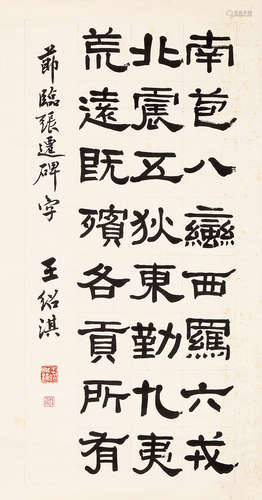 南苞八蠻西羈六戎
北震五狄東勤九夷
荒遠既殯各貢所有
節臨張遷碑字 王紹淇